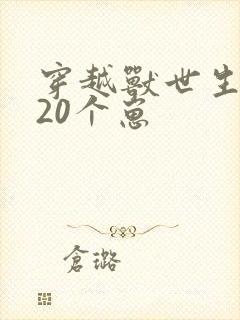 穿越獸世生
20个崽
倉璐